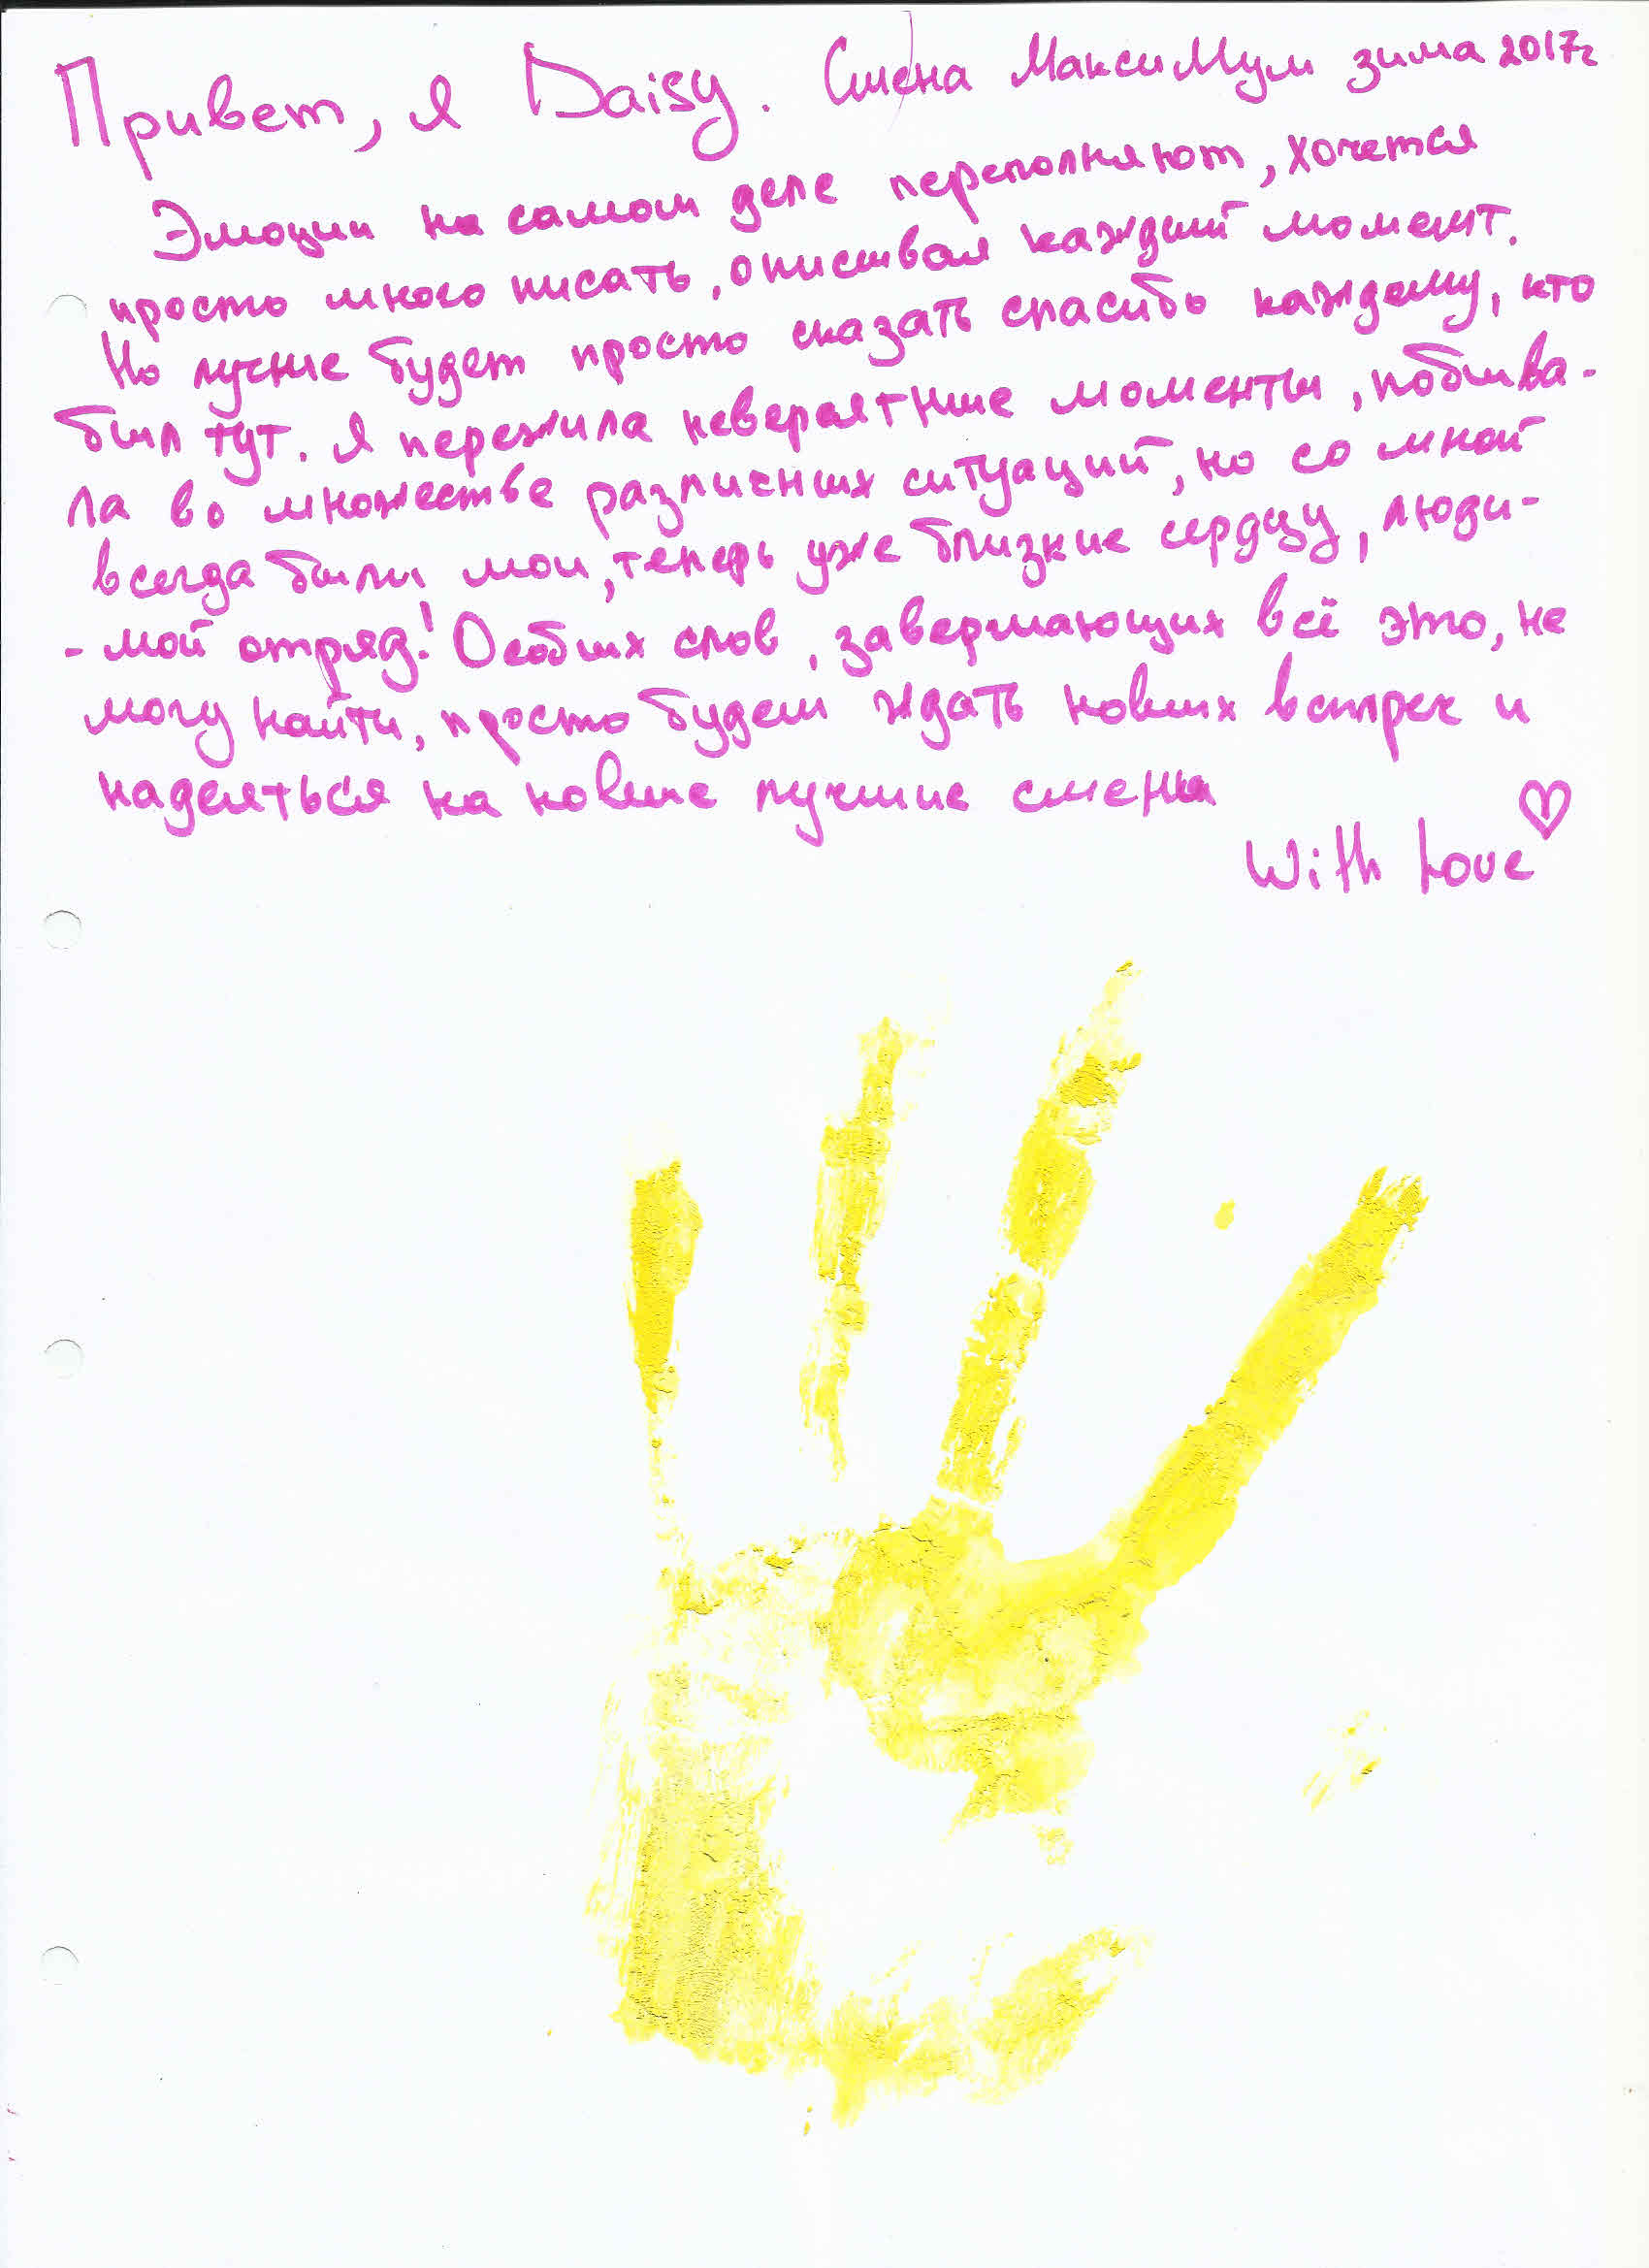 Привет, я Daisy. Смена МаксиМум зима 2017г
Эмоции на самом деле переполняют, хочется
просто много писать, описывая каждый момент.
Но лучше будет просто сказать спасибо каждому, кто
был тут. Я пережила невероятные моменты, побыва-
ла во множестве различных ситуаций, но со мной
всегда были мои, теперь уже близкие сердцу, люди-
- мой отряд! Особых слов, завершающих всё это, не
могу найти, просто будем ждать новых встреч и
надеяться на новые лучшие смены
With Love